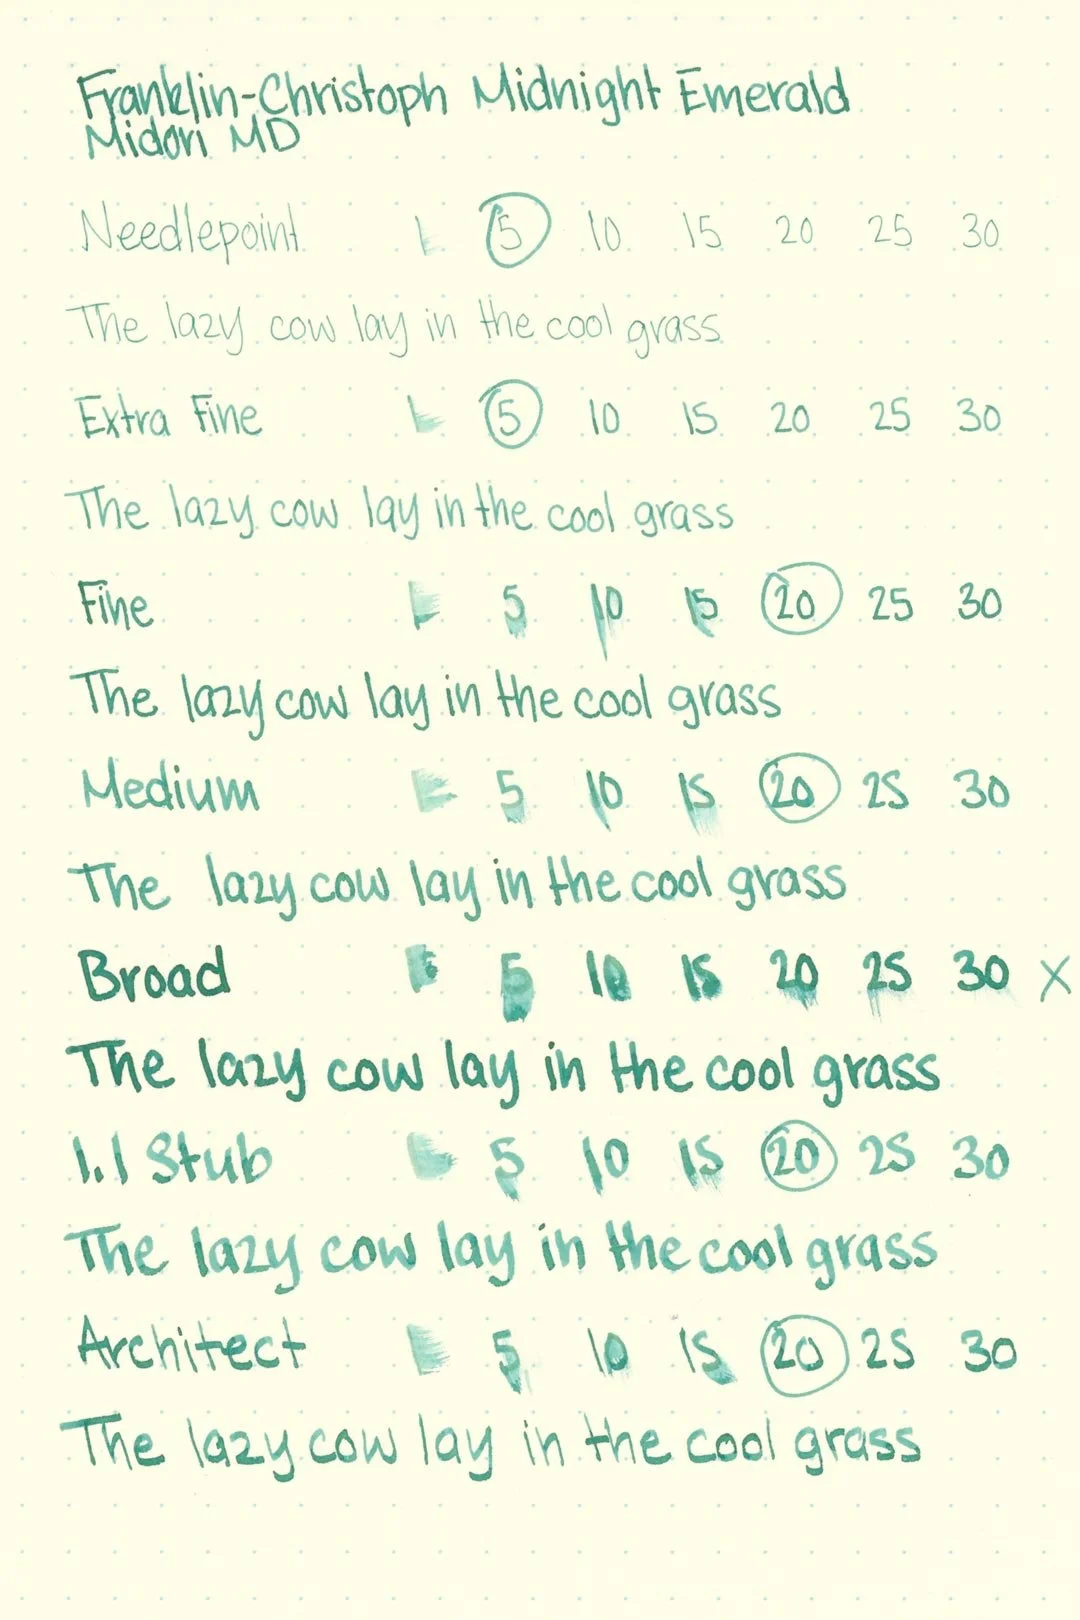 Franklin-Christoph Midnight Emerald
Midori MD
Needlepoint 5 10 15 20 25 30
The lazy cow lay in the cool grass
Extra Fine 5 10 15 20 25 30
The lazy cow lay in the cool grass
Fine 5 10 15 20 25 30
The lazy cow lay in the cool grass
Medium 5 10 15 20 25 30
The lazy cow lay in the cool grass
Broad 5 10 15 20 25 30 X
The lazy cow lay in the cool grass
1.1 Stub 5 10 15 20 25 30
The lazy cow lay in the cool grass
Architect 5 10 15 20 25 30
The lazy cow lay in the cool grass